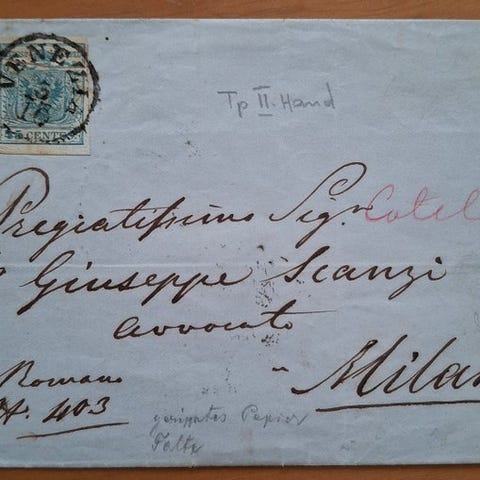 VENEZIA
45 CENTES
Tp II. Hand
Pregiatissimo Sigr.
Giuseppe Scanzi
avvocato
Milan
Romano
No. 403
geripptes Papier
Falte